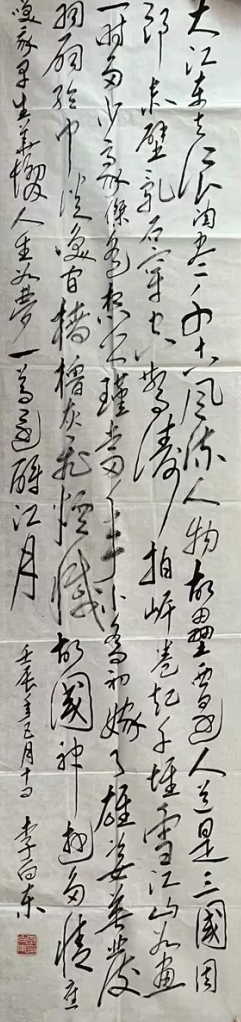 大江东去浪淘尽千古风流人物故垒西边人道是三国周
郎赤壁乱石穿空惊涛拍岸卷起千堆雪江山如画
一时多少豪杰遥想公瑾当年小乔初嫁了雄姿英发
羽扇纶巾谈笑间樯橹灰飞烟灭故国神游多情应
笑我早生华发人生如梦一尊还酹江月
壬辰年 月十 李向东